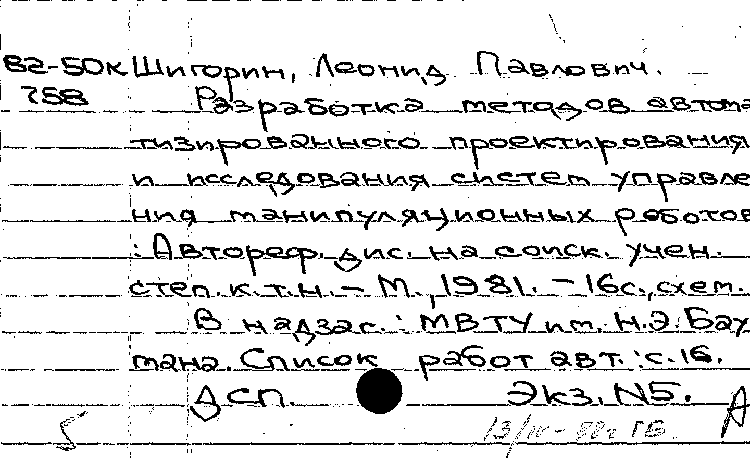 82-50к Шигорин, Леонид Павлович.
758 Разработка методов автома
тизированного проектирования
и исследования систем управле
ния манипуляционных роботов
: Автореф. дис. на соиск. учен.
степ. к.т.н. – М., 1981. – 16с., схем.
В надзаг.: МВТУ им. Н.Э. Бау
мана. Список работ авт.: с.16.
ДСП. Экз. N5.
13/IV-82г ГБ. А
5